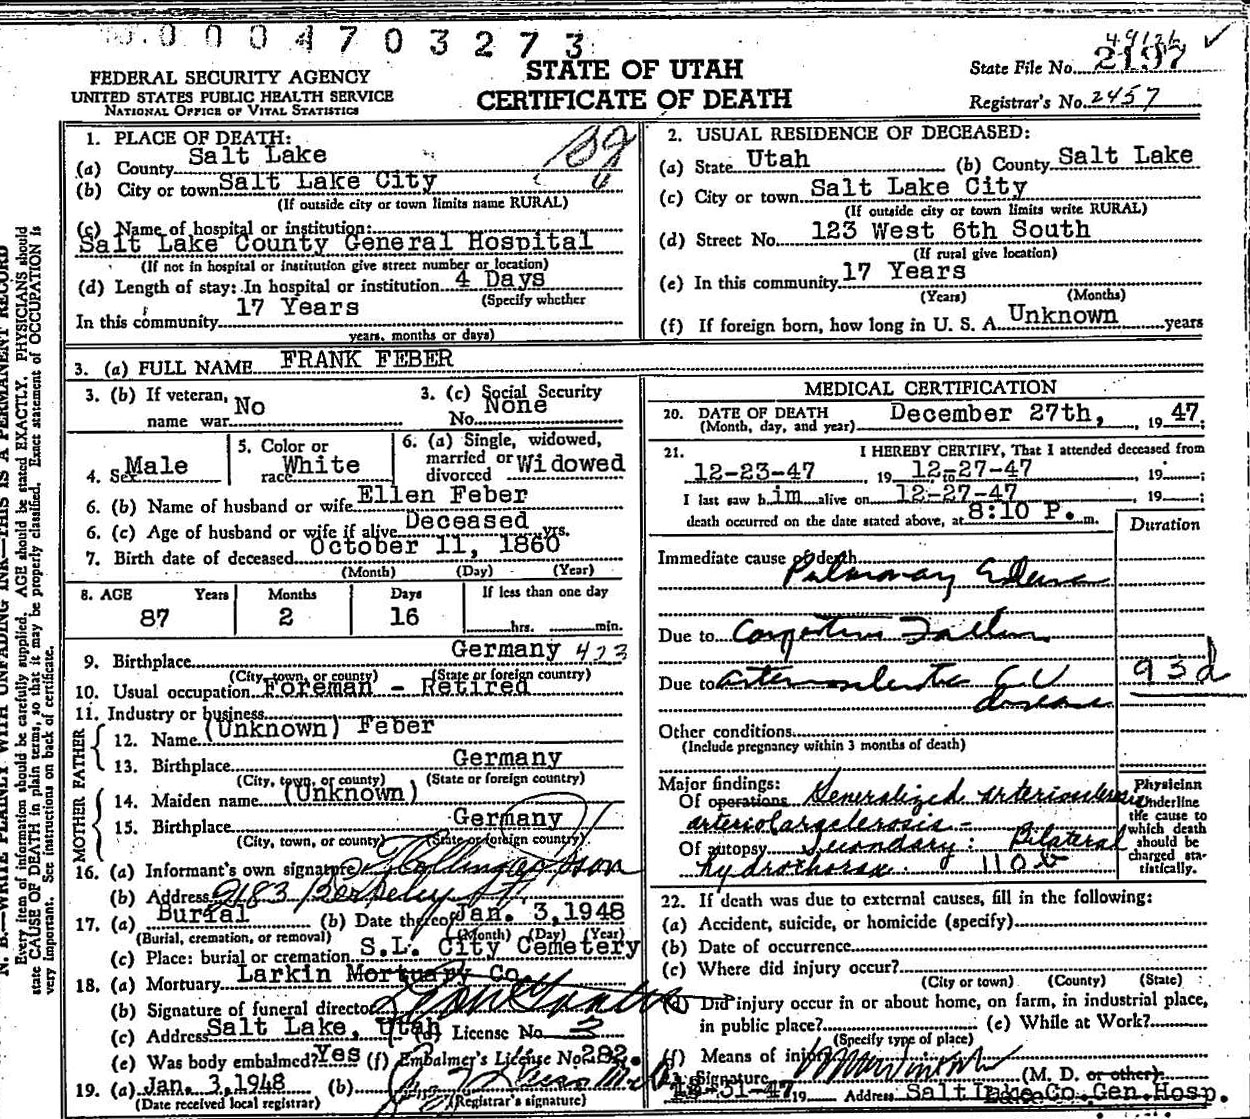 0004703273
49126
STATE OF UTAH
CERTIFICATE OF DEATH
FEDERAL SECURITY AGENCY
UNITED STATES PUBLIC HEALTH SERVICE
NATIONAL OFFICE OF VITAL STATISTICS
State File No. 2197
Registrar's No. 2457
N. B.—WRITE PLAINLY WITH UNFADING INK—THIS IS A PERMANENT RECORD
Every item of information should be carefully supplied. AGE should be stated EXACTLY. PHYSICIANS should
state CAUSE OF DEATH in plain terms, so that it may be properly classified. Exact statement of OCCUPATION is
very important. See instructions on back of certificate.
1. PLACE OF DEATH:
(a) County Salt Lake
(b) City or town Salt Lake City
(If outside city or town limits name RURAL)
(c) Name of hospital or institution:
Salt Lake County General Hospital
(If not in hospital or institution give street number or location)
(d) Length of stay: In hospital or institution 4 Days
(Specify whether
In this community 17 Years
years, months or days)
2. USUAL RESIDENCE OF DECEASED:
(a) State Utah (b) County Salt Lake
(c) City or town Salt Lake City
(If outside city or town limits write RURAL)
(d) Street No. 123 West 6th South
(If rural give location)
(e) In this community 17 Years
(Years) (Months)
(f) If foreign born, how long in U. S. A. Unknown years
3. (a) FULL NAME FRANK FEBER
3. (b) If veteran, name war No
3. (c) Social Security No. None
4. Sex Male
5. Color or race White
6. (a) Single, widowed, married or divorced Widowed
6. (b) Name of husband or wife Ellen Feber
6. (c) Age of husband or wife if alive Deceased yrs.
7. Birth date of deceased October 11, 1860
(Month) (Day) (Year)
8. AGE Years Months Days If less than one day
87 2 16 hrs. min.
9. Birthplace Germany 423
(City, town, or county) (State or foreign country)
10. Usual occupation Foreman - Retired
11. Industry or business
FATHER
12. Name (Unknown) Feber
13. Birthplace Germany
(City, town, or county) (State or foreign country)
MOTHER
14. Maiden name (Unknown)
15. Birthplace Germany
(City, town, or county) (State or foreign country)
16. (a) Informant's own signature
(b) Address 2183 Berkeley St.
17. (a) Burial (b) Date thereof Jan. 3, 1948
(Burial, cremation, or removal) (Month) (Day) (Year)
(c) Place: burial or cremation S.L. City Cemetery
18. (a) Mortuary Larkin Mortuary Co.
(b) Signature of funeral director
(c) Address Salt Lake, Utah (d) License No. 3
(e) Was body embalmed? Yes (f) Embalmer's License No. 282.
19. (a) Jan. 3, 1948 (b)
(Date received local registrar) (Registrar's signature)
MEDICAL CERTIFICATION
20. DATE OF DEATH December 27th, 1947;
(Month, day, and year)
21. I HEREBY CERTIFY, That I attended deceased from
12-23-47 19 to 12-27-47, 19 ;
I last saw him alive on 12-27-47, 19 ;
death occurred on the date stated above, at 8:10 P. m.
Duration
Immediate cause of death Pulmonary Edema
Due to Congestive Failure
Due to arteriosclerotic C V disease 93d
Other conditions
(Include pregnancy within 3 months of death)
Major findings:
Of operations Generalized arteriosclerosis
arteriolarsclerosis -
Of autopsy Secondary: Bilateral
hydrothorax.
Physician
Underline
the cause to
which death
should be
charged sta-
tistically.
22. If death was due to external causes, fill in the following:
(a) Accident, suicide, or homicide (specify)
(b) Date of occurrence
(c) Where did injury occur?
(City or town) (County) (State)
(d) Did injury occur in or about home, on farm, in industrial place,
in public place? (e) While at Work?
(Specify type of place)
(f) Means of injury
Signature (M. D. or other)
12-31-47 19 Address Salt Lake Co. Gen. Hosp.